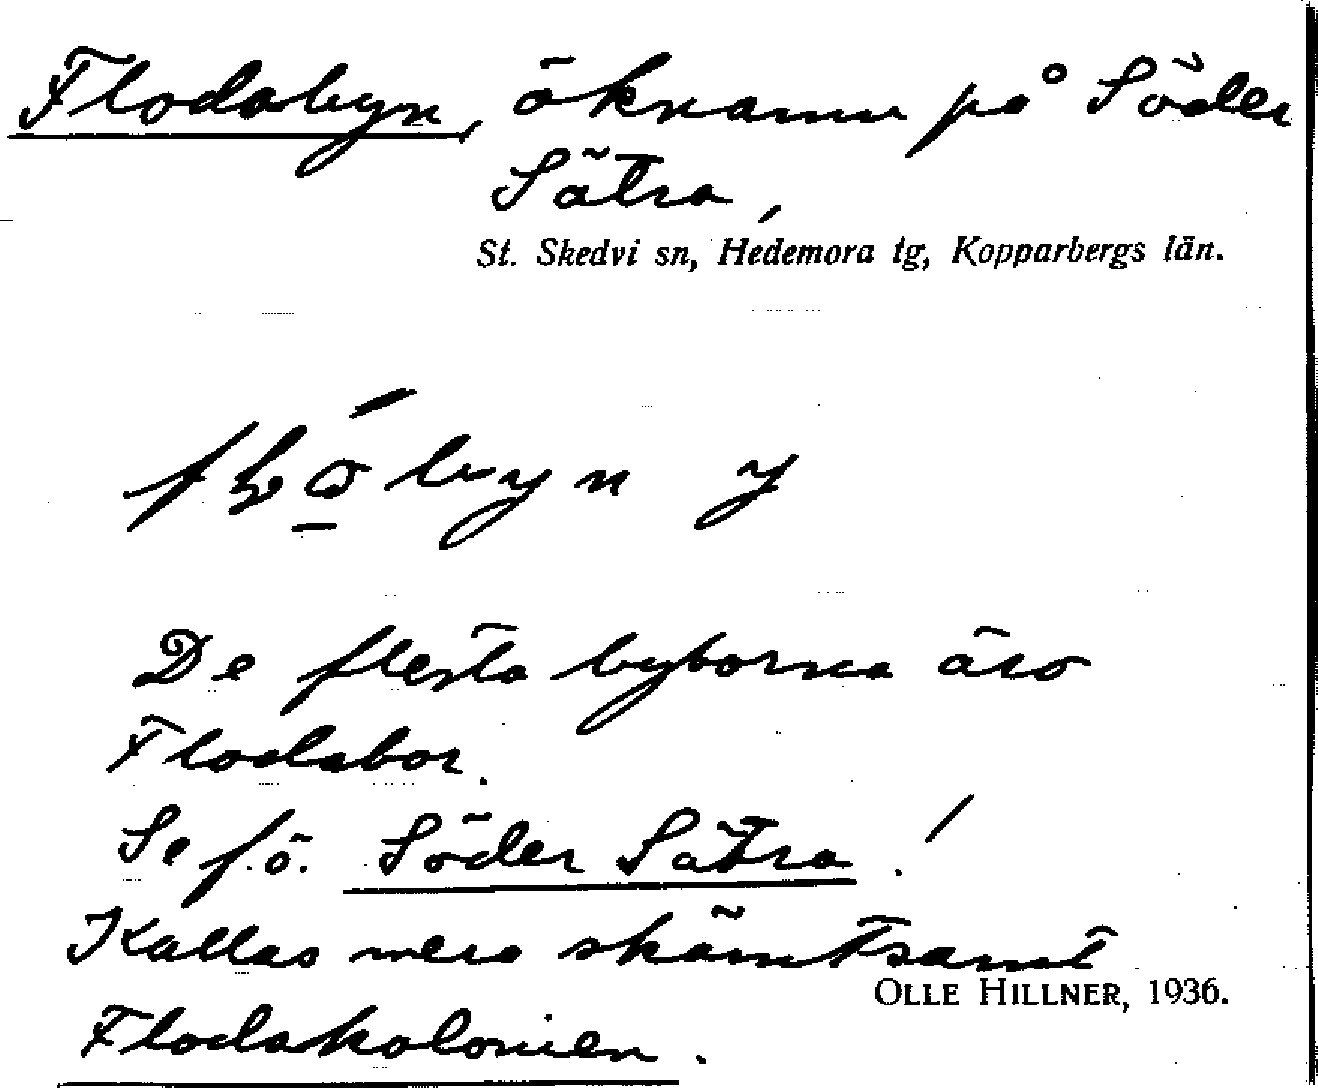 Flodabyn, öknamn på Söder
Sätra,
St. Skedvi sn, Hedemora tg, Kopparbergs län.
De flesta byborna äro
Flodabor.
Se f.ö. Söder Sätra!
Kallas mera skämtsamt
OLLE HILLNER, 1936.
Flodakolonien.